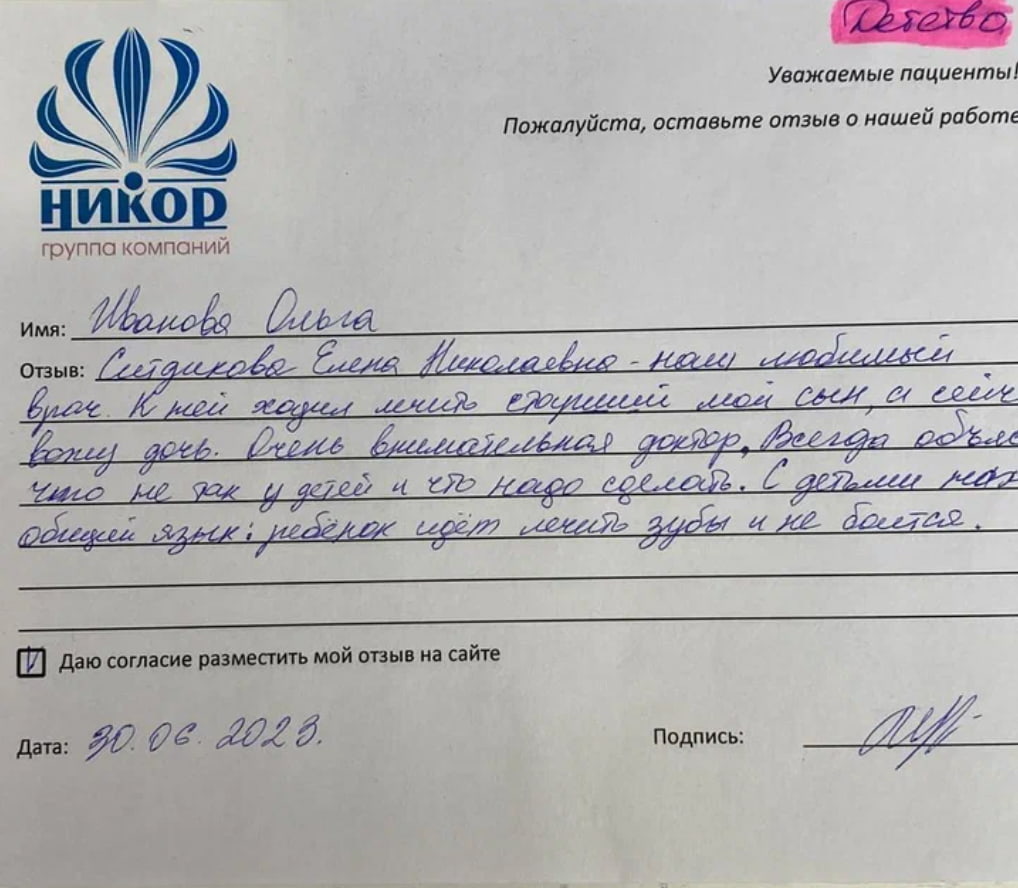 Детство
Уважаемые пациенты!
Пожалуйста, оставьте отзыв о нашей работе
НИКОР
группа компаний
Имя: Иванова Ольга
Отзыв: Ситдикова Елена Николаевна - наш любимый
врач. К ней ходил лечить старший мой сын, а сейч
вожу дочь. Очень внимательная доктор. Всегда объяс
что не так у детей и что надо сделать. С детьми нах
общий язык: ребёнок идёт лечить зубы и не боится.
Даю согласие разместить мой отзыв на сайте
Дата: 30.06.2023.
Подпись: